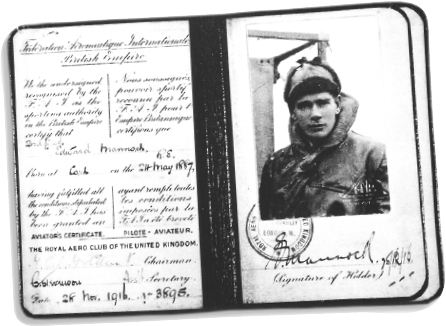 Federation Aeronautique Internationale
British Empire
We the undersigned
recognised by the
F.A.I as the
sporting authority
in the British Empire
certify that
Nous soussignés
pouvoir sportif
reconnu par la
F.A.I pour l'
Empire Britannique
certifions que
Edward Mannock, R.E.
Born at Cork on the 24 May 1887,
having fulfilled all
the conditions stipulated
by the F.A.I has
been granted an
AVIATOR'S CERTIFICATE
ayant rempli toutes
les conditions
imposées par la
F.A.I a été breveté
PILOTE - AVIATEUR.
THE ROYAL AERO CLUB OF THE UNITED KINGDOM.
Chairman
Secretary
Date 28 Nov. 1916. No 3895.
Mannock
(Signature of Holder)